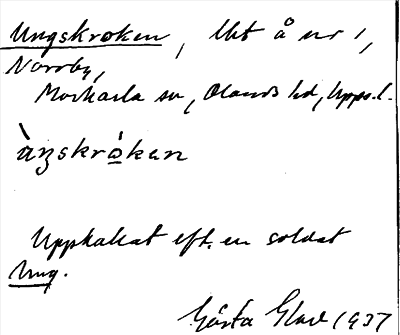 Ungskroken, Utt å nr 1,
Norrby,
Morkarla sn, Olands hd, Upps. l.
ùŋskrò̲kan
Uppkallat eft. en soldat
Ung.
Gösta Glad 1937